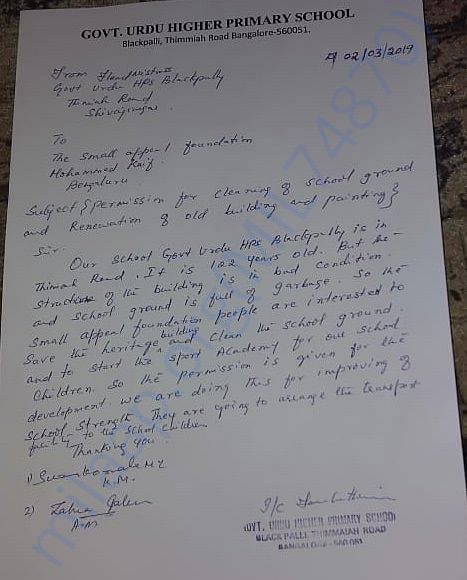 GOVT. URDU HIGHER PRIMARY SCHOOL
Blackpalli, Thimmiah Road Bangalore-560051.
02/03/2019
From Head Mistress
Govt Urdu HPS Blackpally
Thimiah Road
Shivajinagar.
To
The Small appeal foundation
Mohammed Kaif.
Bengaluru.
Subject {permission for cleaning of school ground
and Renewation of old building and painting}
Sir.
Our School Govt Urdu HPS Blackpally is in
Thimiah Road. It is 122 years old. But the
structure of the building is in bad condition.
and school ground is full of garbage. So the
Small appeal foundation people are interested to
Save the heritage building and Clean the School ground.
and to start the sport Academy for our School
Children. So the permission is given for the
development. we are doing this for improving of
School Strength. They are going to arrange the transport
facility to the School Children
Thanking you.
1)
H.M.
2)
A.M
I/C
GOVT. URDU HIGHER PRIMARY SCHOOL
BLACK PALLI, THIMMAIAH ROAD
BANGALORE - 560 051